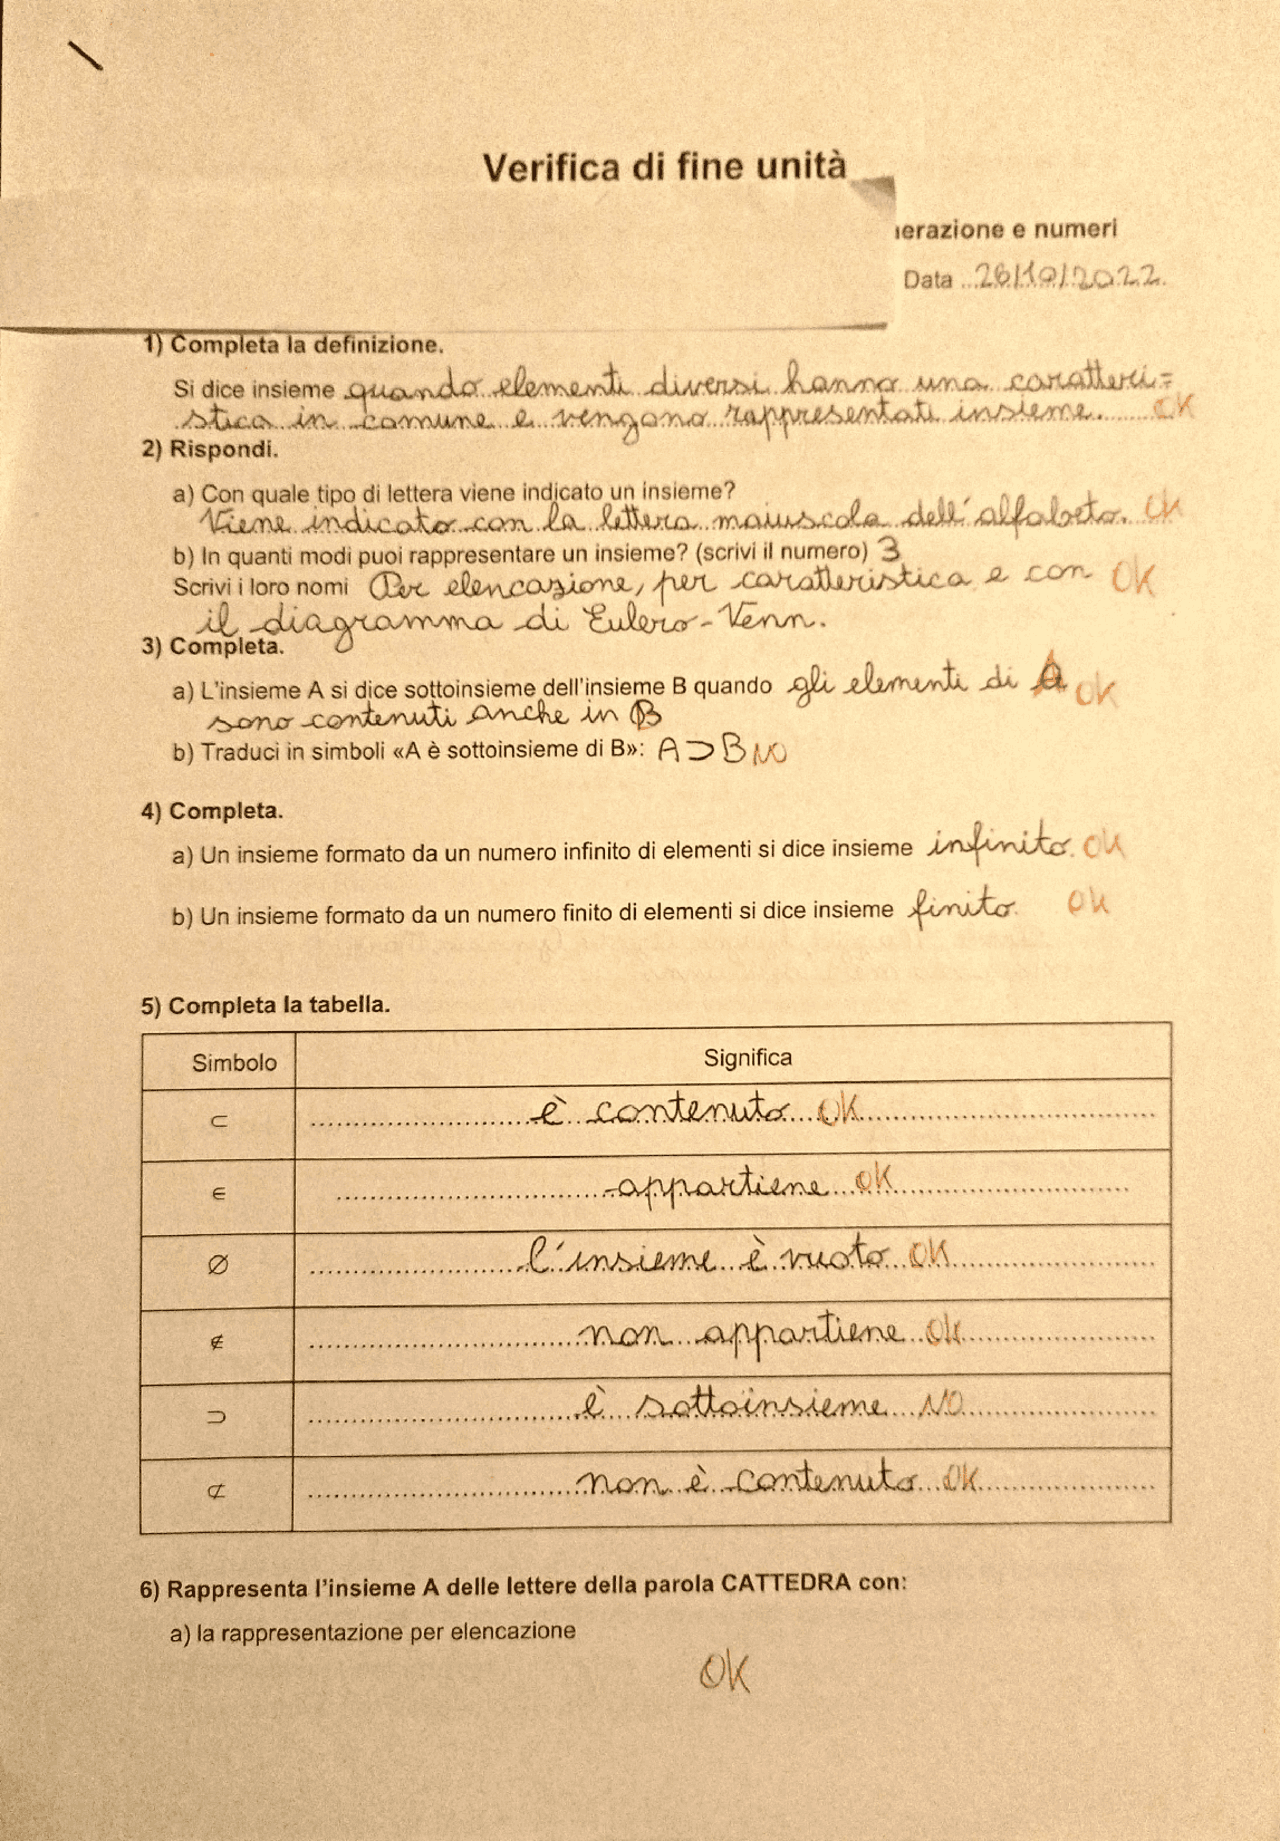 Verifica di fine unità
erazione e numeri
Data 26/10/2022
1) Completa la definizione.
Si dice insieme quando elementi diversi hanno una caratteri=
stica in comune e vengono rappresentati insieme. OK
2) Rispondi.
a) Con quale tipo di lettera viene indicato un insieme?
Viene indicato con la lettera maiuscola dell'alfabeto. OK
b) In quanti modi puoi rappresentare un insieme? (scrivi il numero) 3
Scrivi i loro nomi Per elencazione, per caratteristica e con OK
il diagramma di Eulero-Venn.
3) Completa.
a) L'insieme A si dice sottoinsieme dell'insieme B quando gli elementi di A OK
sono contenuti anche in B
b) Traduci in simboli «A è sottoinsieme di B»: A ⊃ B NO
4) Completa.
a) Un insieme formato da un numero infinito di elementi si dice insieme infinito. OK
b) Un insieme formato da un numero finito di elementi si dice insieme finito. OK
5) Completa la tabella.
Simbolo Significa
⊂ è contenuto OK
∈ appartiene OK
∅ l'insieme è vuoto OK
∉ non appartiene OK
⊃ è sottoinsieme NO
⊄ non è contenuto OK
6) Rappresenta l'insieme A delle lettere della parola CATTEDRA con:
a) la rappresentazione per elencazione
OK